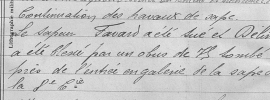 Continuation des travaux de sape.
Le sapeur Favard a été tué et
a été blessé par un obus de 75 tombé
près de l'entrée en galerie de la sape
la 9e Cie